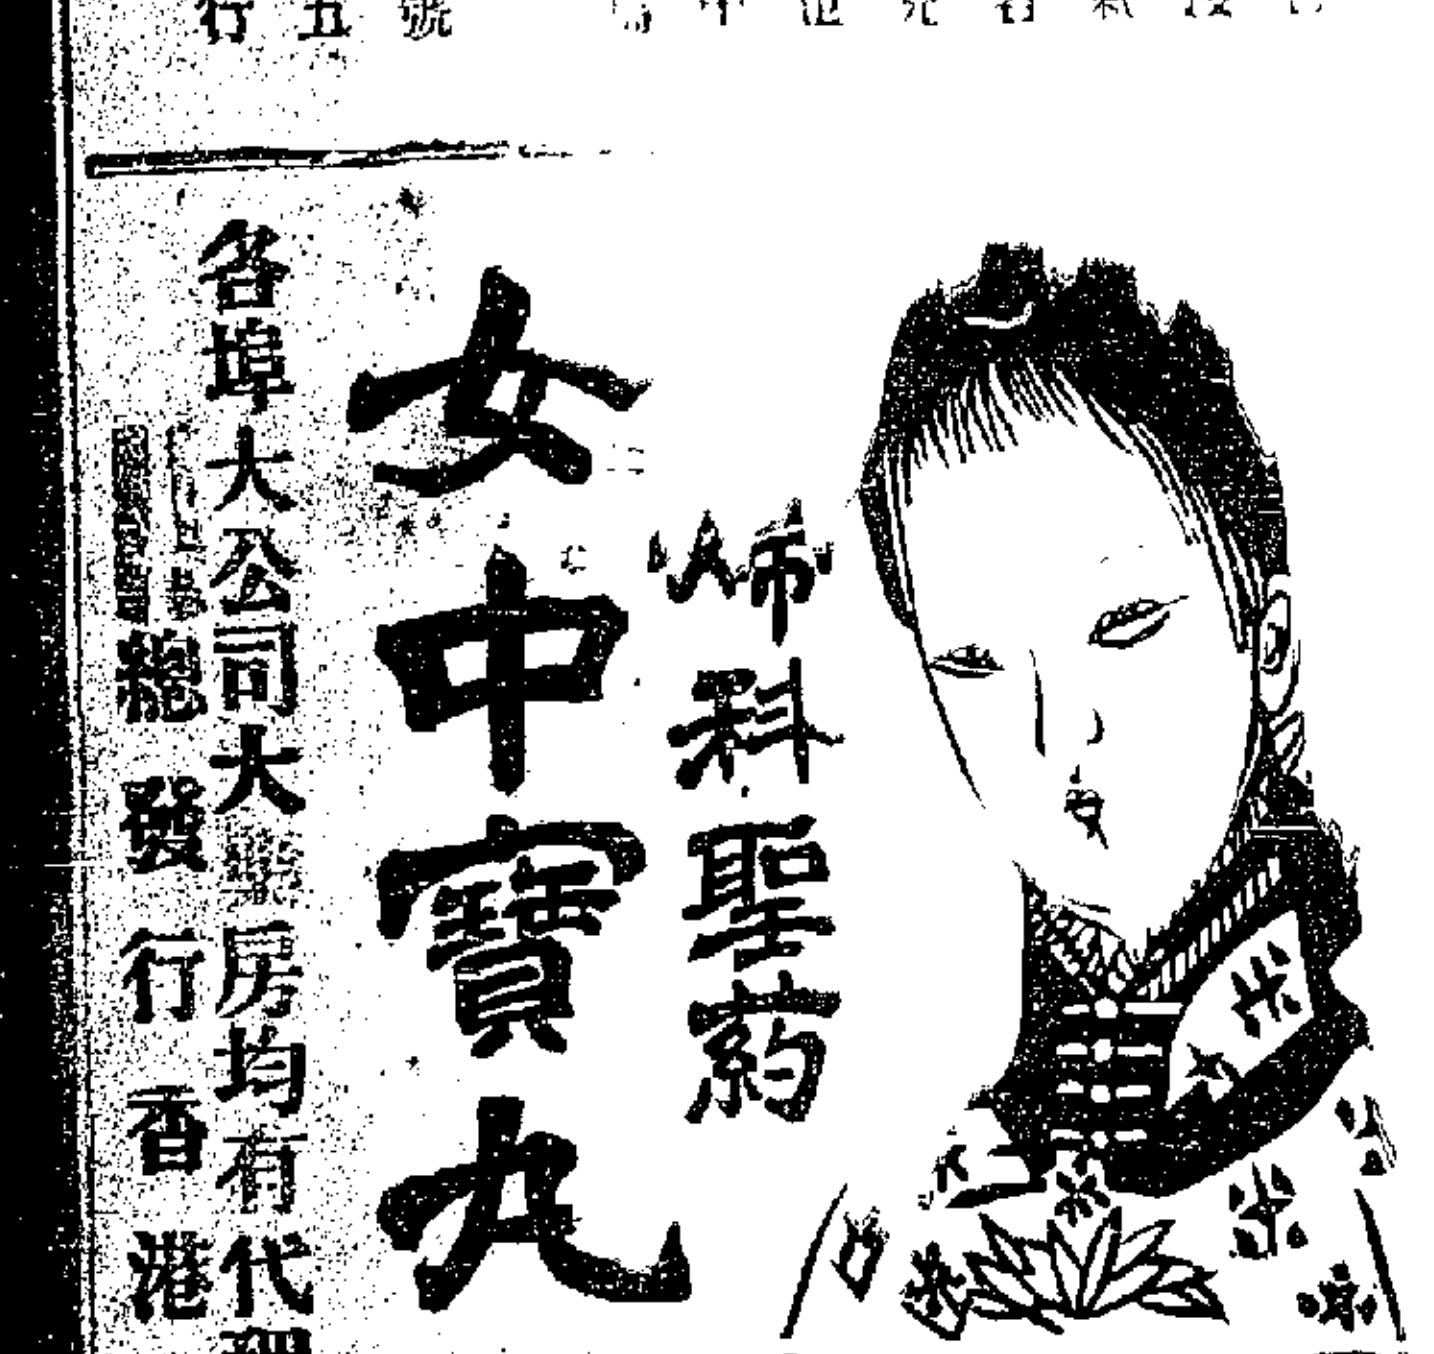 婦科聖葯
女中寶丸
各埠大公司大藥房均有代理
總發行香港